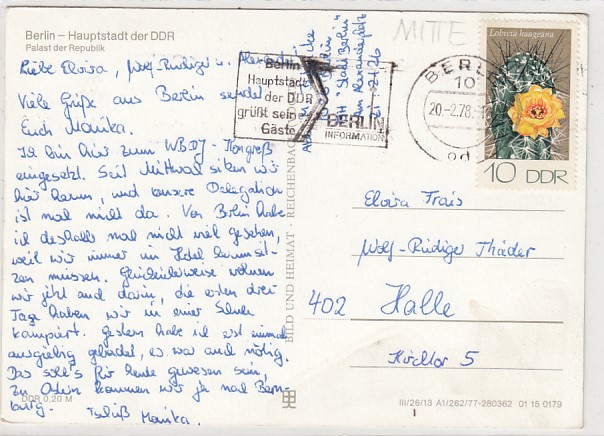 Berlin – Hauptstadt der DDR
Palast der Republik
MITTE
Liebe Elvira, Wolf-Rüdiger u.
Viele Grüße aus Berlin sendet
Euch Monika.
Ich bin hier zum WBDJ-Kongreß
eingesetzt. Seit Mittwoch sitzen wir
hier herum, und unsere Delegation
ist mal nicht da. Von Berlin habe
ich deshalb mal nicht viel gesehen,
weil wir immer im Hotel herumsit-
zen müssen. Glücklicherweise wohnen
wir jetzt auch darin, die ersten drei
Tage haben wir in einer Schule
kampiert. Gestern habe ich erst einmal
ausgiebig gebadet, es war auch nötig.
Das soll's für heute gewesen sein,
Zu Ostern kommen wir ja nach Bern-
burg. Tschüß Monika.
Berlin
Hauptstadt
der DDR
grüßt seine
Gäste
BERLIN
INFORMATION
BERLIN
20.-2.78
Lobivia haageana
10 DDR
Elvira Frais
Wolf-Rüdiger Thäder
402 Halle
Kirchtor 5
BILD UND HEIMAT · REICHENBACH
DDR 0,20 M
III/26/13 A1/262/77-280362 01 15 0179